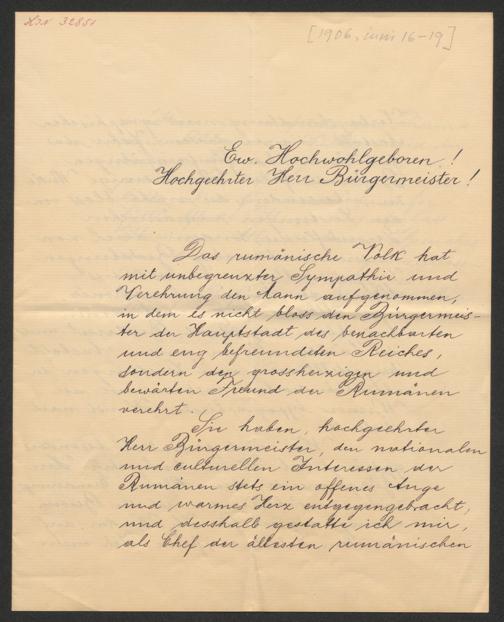 [1906, iuni 16-19]
Ew. Hochwohlgeboren!
Hochgeehrter Herr Bürgermeister!
Das rumänische Volk hat
mit unbegrenzter Sympathie und
Verehrung den Mann aufgenommen,
in dem es nicht bloss den Bürgermeis-
ter der Hauptstadt des benachbarten
und eng befreundeten Reiches,
sondern den grossherzigen und
bewärten Freund der Rumänen
verehrt.
Sie haben, hochgeehrter
Herr Bürgermeister, den nationalen
und culturellen Interessen der
Rumänen stets ein offenes Auge
und warmes Herz entgegengebracht,
und desshalb gestatte ich mir,
als Chef der ältesten rumänischen